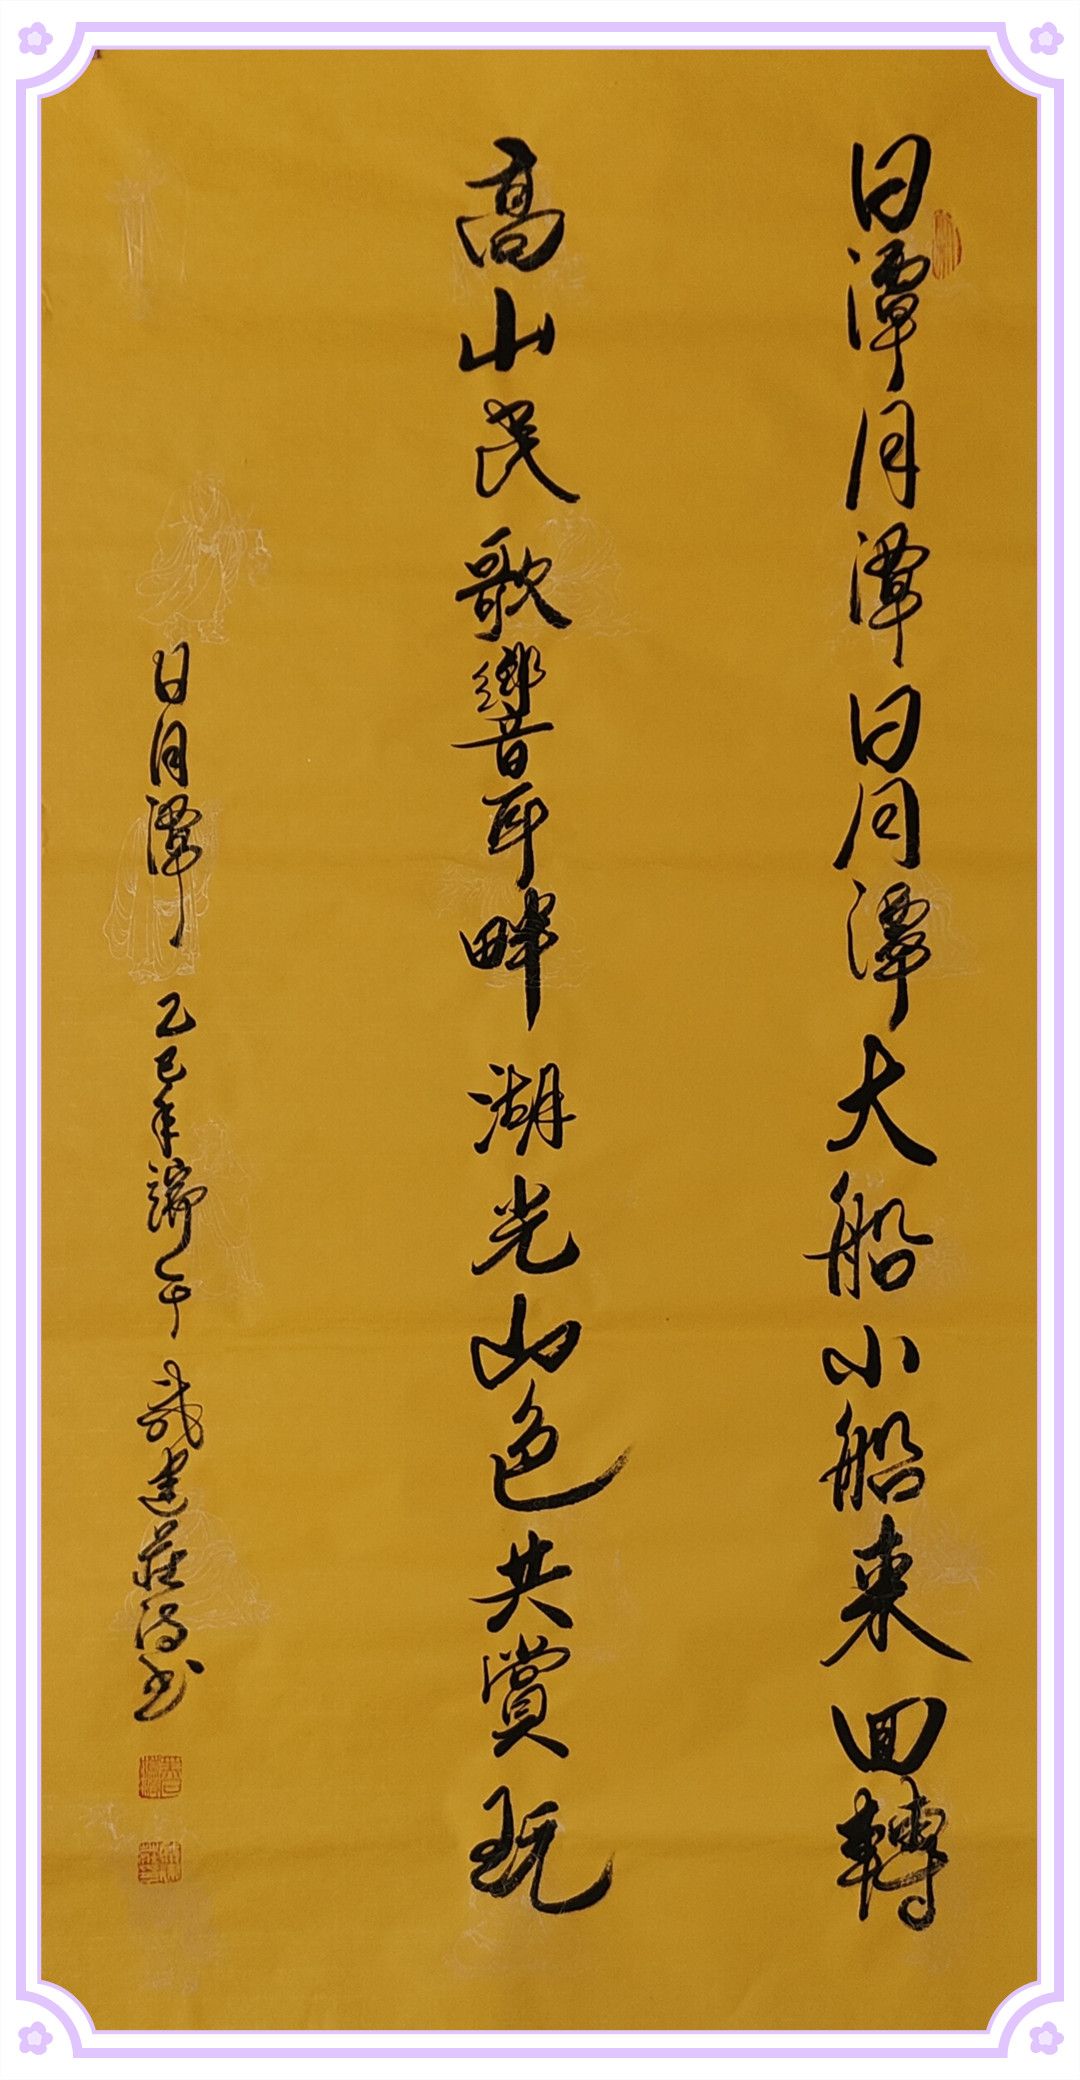 日潭月潭日月潭大船小船来回轉
高山民歌響耳畔湖光山色共賞玩
日月潭 乙巳年端午 莊海书